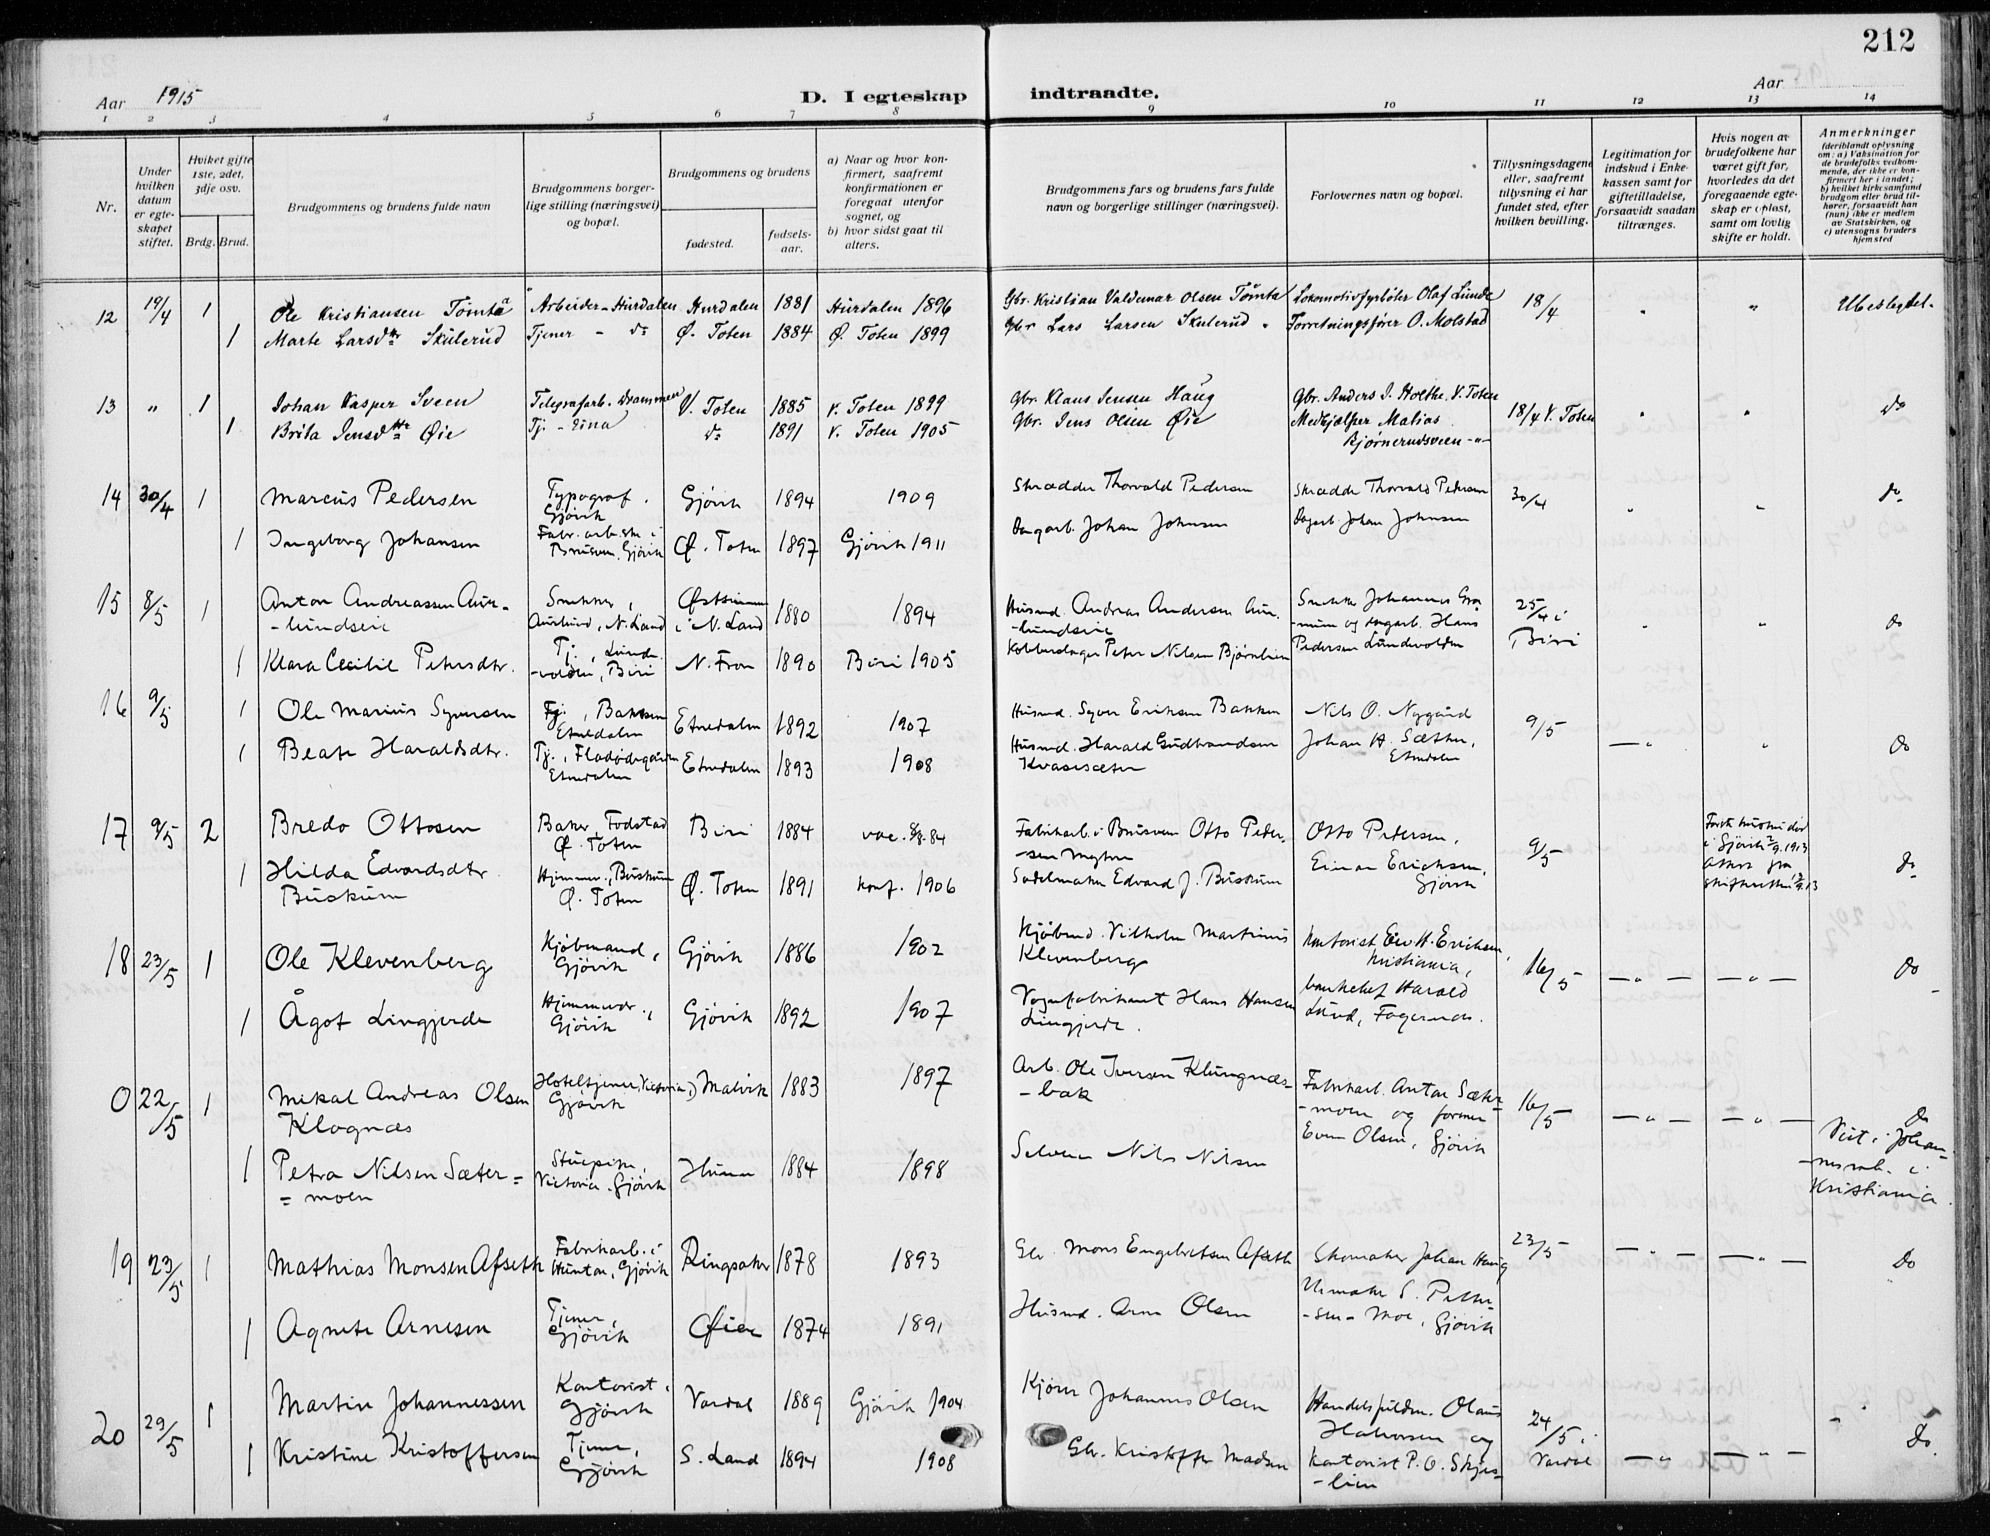 212
Aar 1915
D. I egteskap indtraadte.
Aar
1 2 3 4 5 6 7 8 9 10 11 12 13 14
Nr.
Under hvilken datum er egteskapet stiftet.
Hviket gifte 1ste, 2det, 3dje osv.
Brdg. Brud.
Brudgommens og brudens fulde navn
Brudgommens borgerlige stilling (næringsvei) og bopæl.
Brudgommens og brudens
fødested.
fødselsaar.
a) Naar og hvor konfirmert, saafremt konfirmationen er foregaat utenfor sognet, og
b) hvor sidst gaat til alters.
Brudgommens fars og brudens fars fulde navn og borgerlige stillinger (næringsvei).
Forlovernes navn og bopæl.
Tillysningsdagene eller, saafremt tillysning ei har fundet sted, efter hvilken bevilling.
Legitimation for indskud i Enkekassen samt for giftetilladelse, forsaavidt saadan tiltrænges.
Hvis nogen av brudefolkene har været gift før, hvorledes da det foregaaende egteskap er opløst, samt om lovlig skifte er holdt.
Anmerkninger (deriblandt oplysning om: a) Vaksination for de brudefolks vedkommende, der ikke er konfirmert her i landet; b) hvilket kirkesamfund brudgom eller brud tilhører, forsaavidt han (hun) ikke er medlem av Statskirken, og c) utensogns bruders hjemsted
12 19/4 1 Ole Kristiansen Tømta Arbeider - Hurdalen Hurdalen 1881 Hurdalen 1896 Gbr. Kristian Valdemar Olsen Tømta Lokomotivfyrbøter Olaf Lunde 18/4 " " Ubeslegtet.
1 Marte Larsdtr Skulerud Tjener - do Ø. Toten 1884 Ø. Toten 1899 Gbr Lars Larsen Skulerud Forretningsfører O. Molstad
13 " 1 Johan Kasper Sveen Telegrafarb. Drammen V. Toten 1885 V. Toten 1899 Gbr. Klaus Jensen Haug Gbr. Anders J. Holthe V. Toten 18/4 V. Toten " " do
1 Brita Jensdtr Øie Tj. - Eina do 1891 V. Toten 1905 Gbr. Jens Olsen Øie Medhjælper Matias
Bjørnerudsveen -"-
14 30/4 1 Marcus Pedersen Typograf. Gjøvik Gjøvik 1894 1909 Skrædder Thorvald Pedersen Skrædder Thorvald Pedersen 30/4 " " do
1 Ingeborg Johansen Fabr. arb.ske i Brusven, Gjøvik Ø. Toten 1897 Gjøvik 1911 Dagarb. Johan Johnsen Dagarb. Johan Johnsen
15 8/5 1 Anton Andreassen Aur-
-lundseie Snekker, Aurlund, N. Land i N. Land 1880 1894 Husmd. Andreas Andersen Aur-
-lundseie Snekker Johannes
og dagarb. Hans 25/4 i Biri " " do
1 Klara Cecilie Petersdtr. Tj., Lunde-
-volden, Biri N. Fron 1890 Biri 1905 Peter Nilsen Bjørnlien Pedersen Lundevolden
16 9/5 1 Ole Marius Syversen Tj., Bakken Etnedalen Etnedalen 1892 1907 Husmd. Syver Eriksen Bakken Nils O. Nygård 9/5
1 Beate Haraldsdtr. Tj., Etnedalen Etnedalen 1893 1908 Husmd. Harald Gudbrandsen
Kvasesæter Johan H. Sæther, Etnedalen — " " do
17 9/5 2 Bredo Ottosen Baker, Fodstad Ø. Toten Biri 1884 vac. 8/8.84 Fabrikarb. i Brusven Otto Peder-
-sen Otto Pedersen, 9/5 i Gjøvik 2/9.1913 do
1 Hilda Edvardsdtr.
Buskum Hjemmev., Buskum Ø. Toten Ø. Toten 1891 konf. 1906 Sadelmaker Edvard J. Buskum Einar Erichsen, Gjøvik
18 23/5 1 Ole Klevenberg Kjøbmand, Gjøvik Gjøvik 1886 1902 Kjøbmd. Vilhelm Martinus
Klevenberg Kontorist H. Erichsen, Kristiania, 16/5 — " — — " — do
1 Ågot Lingjerde Hjemmevær., Gjøvik Gjøvik 1892 1907 Vognfabrikant Hans Hansen
Lingjerde. bankchef Harald
Lund, Fagernes.
0 22/5 1 Mikal Andreas Olsen
Klognæs Hoteltjener, (Victoria) Gjøvik Malvik 1883 1897 Arb. Ole Iversen Klungnæs-
-bak Fabrikarb. Anton Sæter-
-moen og former
Even Olsen, Gjøvik 16/5 — " — — " — do
Viet i Johan-
-nes k. i
Kristiania.
1 Petra Nilsen Sæter-
-moen Stuepike, Victoria, Gjøvik Hunn 1884 1898 Selveier Nils Nilsen
19 23/5 1 Mathias Monsen Afseth Fabrikarb. i Hunton, Gjøvik Ringsaker 1878 1893 Gbr. Mons Engebretsen Afseth Skomaker Johan Haug 23/5 — " — — " — do
1 Agnete Arnesen Tjener, Gjøvik Øier 1874 1891 Husmd. Arne Olsen Urmaker S. Petter-
-sen-Moe, Gjøvik
20 29/5 1 Martin Johannessen Kontorist, Gjøvik Vardal 1889 Gjøvik 1904 Kjører Johannes Olsen Handelsfuldm. Olaus
Halvorsen og 24/5 i Vardal — " — — " — do.
1 Kristine Kristoffersen Tjener, Gjøvik S. Land 1894 1908 Gbr. Kristoffer Madsen Kontorist P. O. Skjes-
-lien